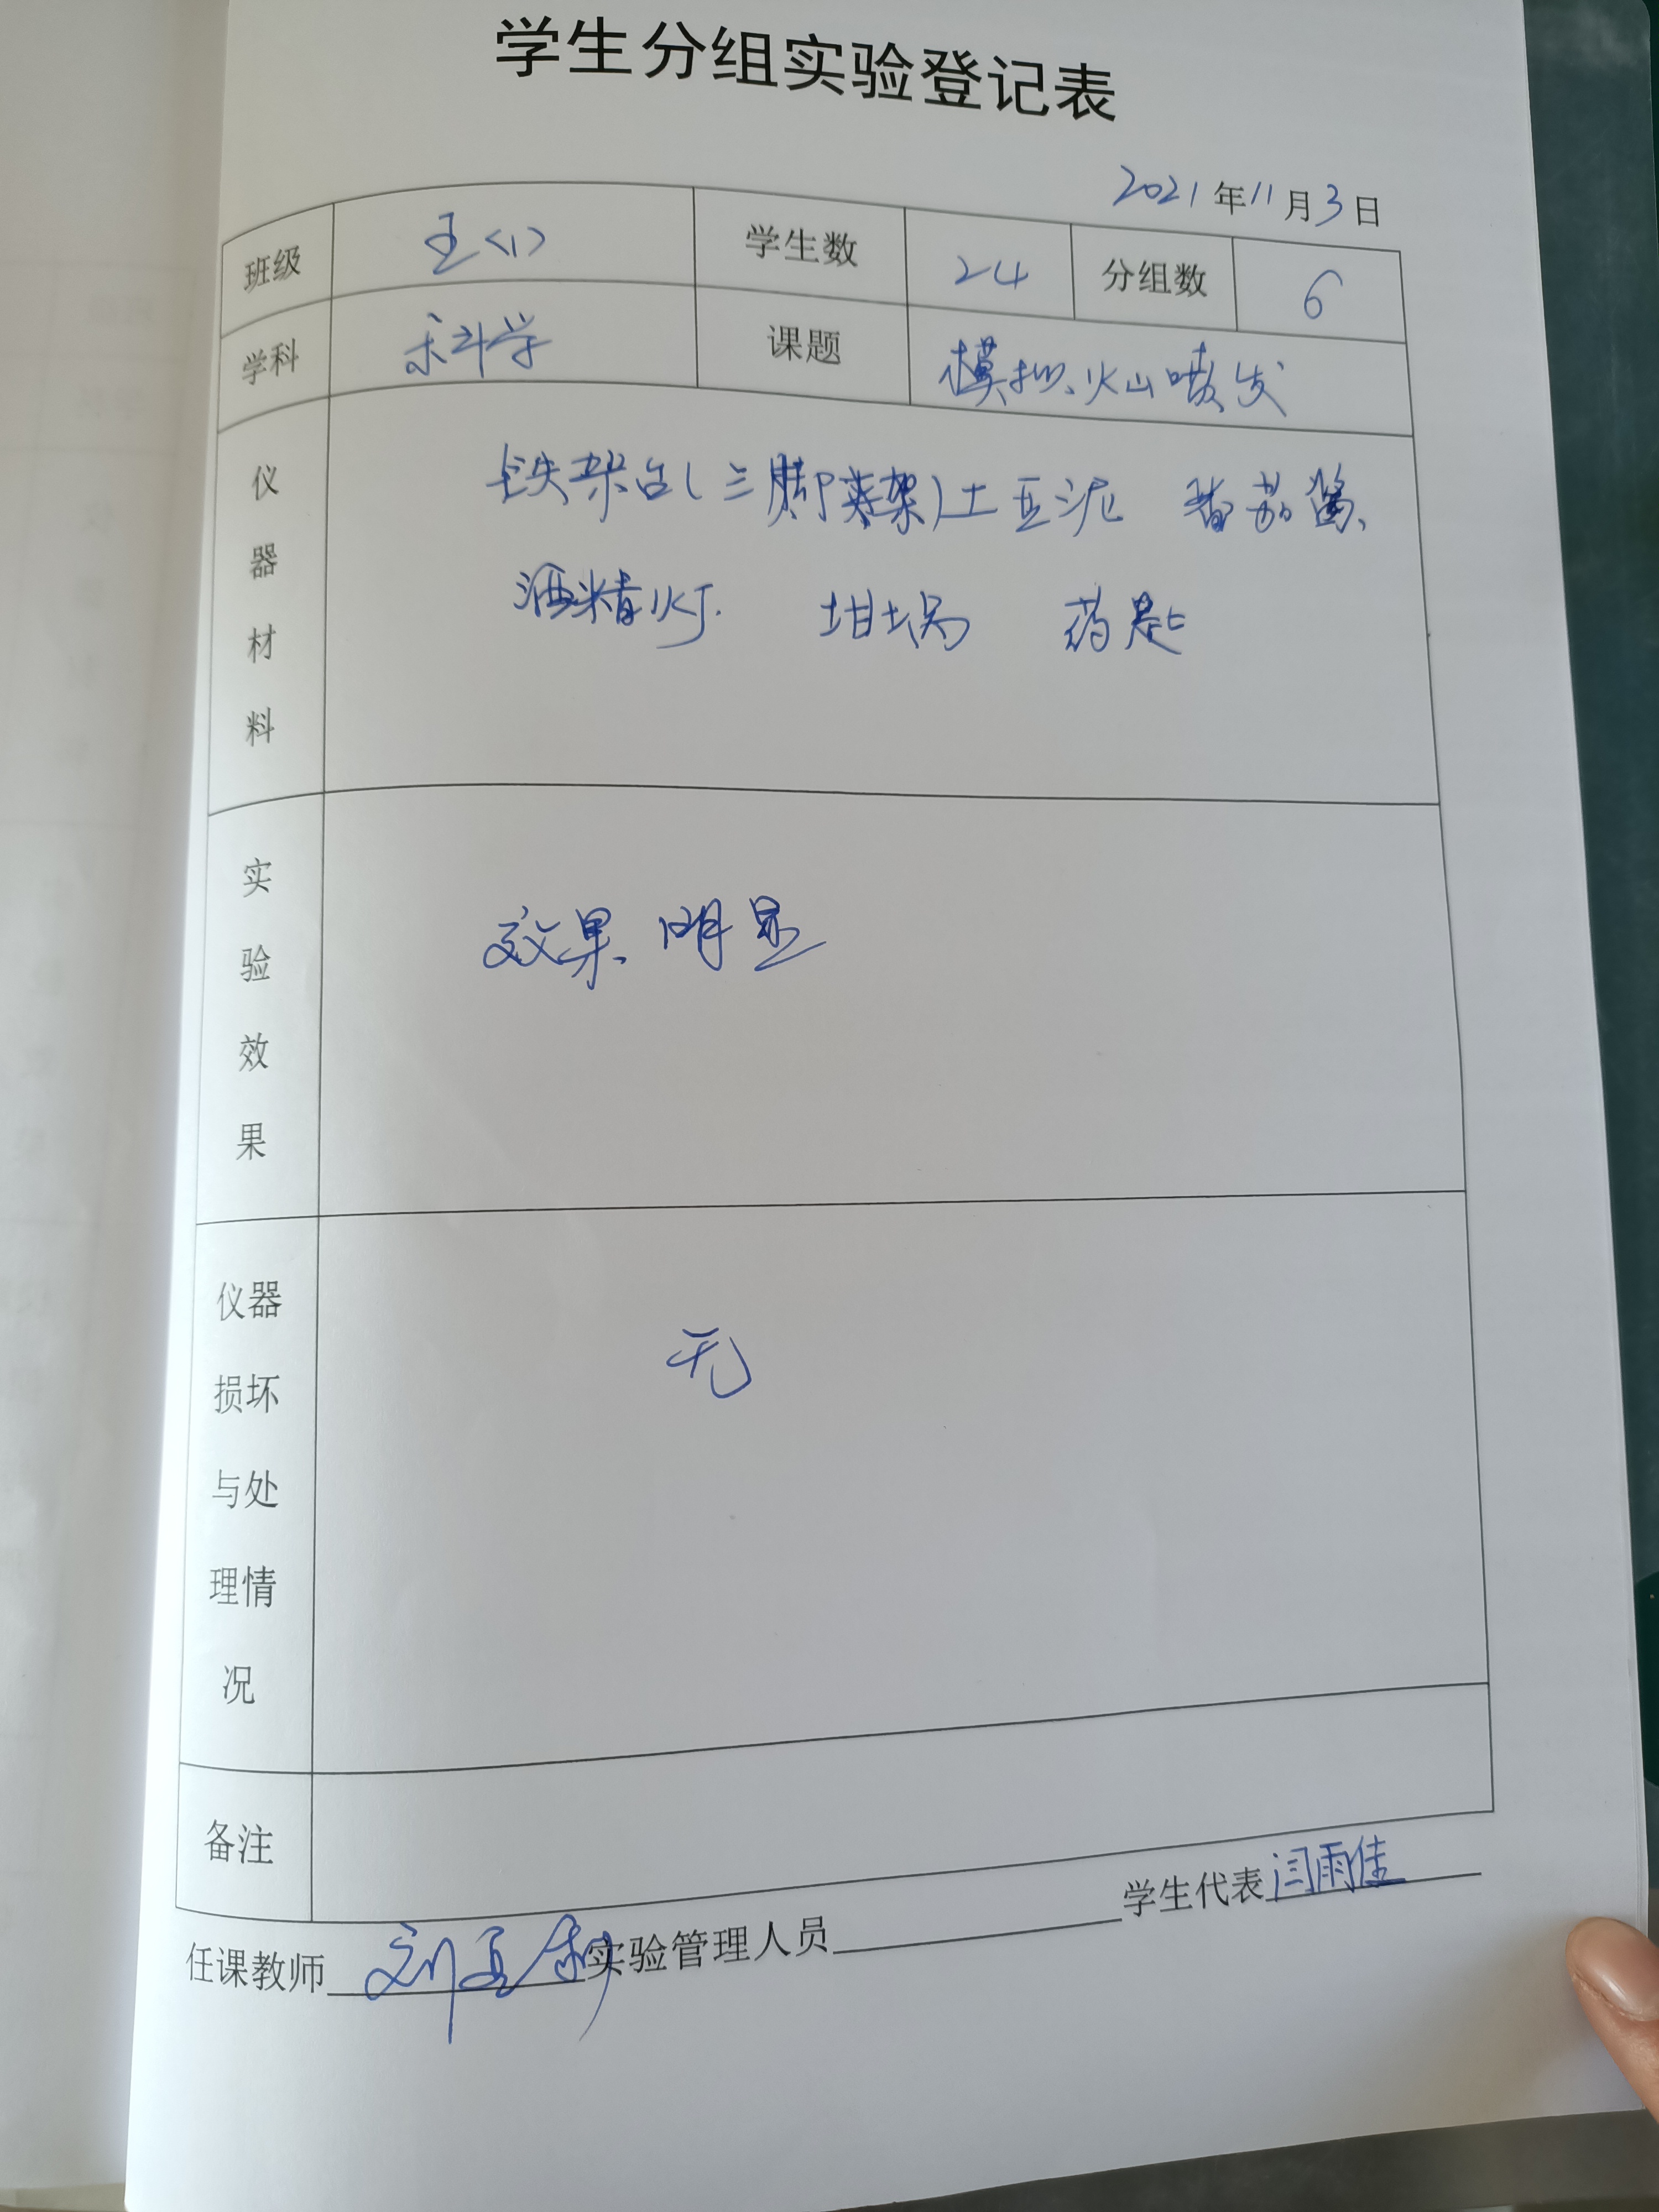 学生分组实验登记表
2021年11月3日
班级 五<1> 学生数 24 分组数 6
学科 科学 课题 模拟火山喷发
仪器材料 铁架台(三脚架)土豆泥 番茄酱
酒精灯 坩埚 药匙
实验效果 效果明显
仪器损坏与处理情况 无
备注
任课教师 刘 实验管理人员 学生代表 闫雨佳